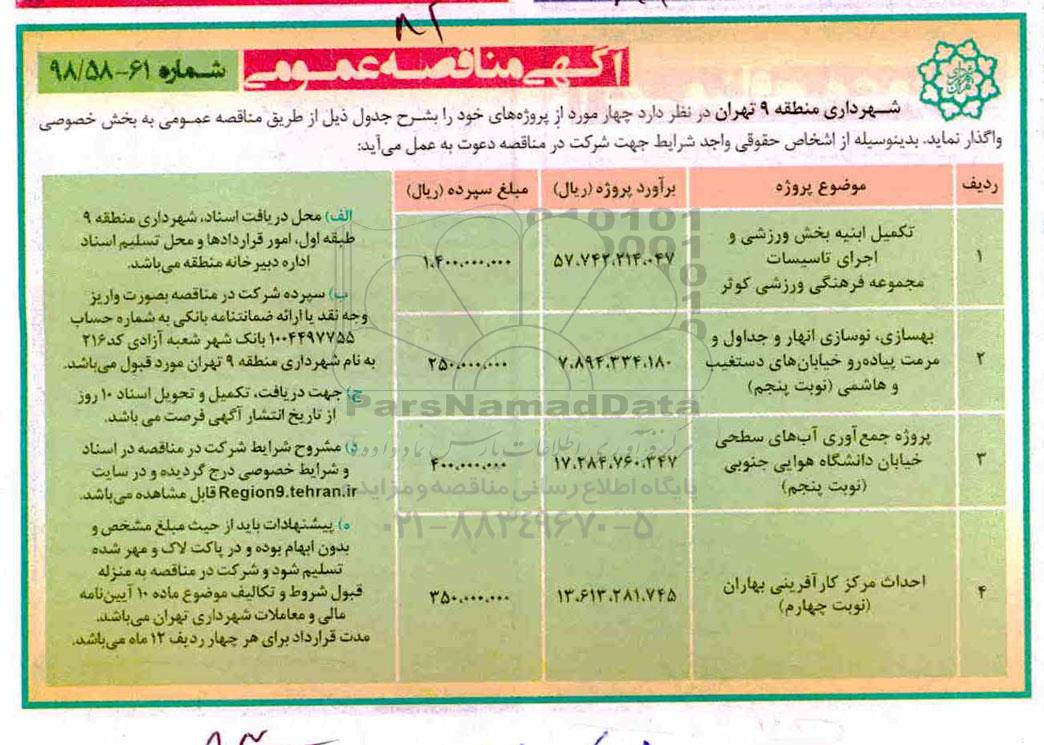 ۸۲
آگهی مناقصه عمومی
شماره ۶۱-۹۸/۵۸
شهرداری منطقه ۹ تهران در نظر دارد چهار مورد از پروژه‌های خود را بشرح جدول ذیل از طریق مناقصه عمومی به بخش خصوصی
واگذار نماید. بدینوسیله از اشخاص حقوقی واجد شرایط جهت شرکت در مناقصه دعوت به عمل می‌آید:
ردیف موضوع پروژه برآورد پروژه (ریال) مبلغ سپرده (ریال)
۱ تکمیل ابنیه بخش ورزشی و
اجرای تاسیسات
مجموعه فرهنگی ورزشی کوثر
۵۷.۷۴۲.۲۱۴.۰۴۷ ۱.۴۰۰.۰۰۰.۰۰۰
۲ بهسازی، نوسازی انهار و جداول و
مرمت پیاده‌رو خیابان‌های دستغیب
و هاشمی (نوبت پنجم)
۷.۸۹۴.۳۳۴.۱۸۰ ۲۵۰.۰۰۰.۰۰۰
۳ پروژه جمع‌آوری آب‌های سطحی
خیابان دانشگاه هوایی جنوبی
(نوبت پنجم)
۱۷.۲۸۴.۷۶۰.۳۴۷ ۴۰۰.۰۰۰.۰۰۰
۴ احداث مرکز کارآفرینی بهاران
(نوبت چهارم)
۱۳.۶۱۳.۲۸۱.۷۴۵ ۳۵۰.۰۰۰.۰۰۰
الف) محل دریافت اسناد، شهرداری منطقه ۹
طبقه اول، امور قراردادها و محل تسلیم اسناد
اداره دبیرخانه منطقه می‌باشد.
ب) سپرده شرکت در مناقصه بصورت واریز
وجه نقد یا ارائه ضمانتنامه بانکی به شماره حساب
۱۰۰۴۴۹۷۷۵۵ بانک شهر شعبه آزادی کد ۲۱۶
به نام شهرداری منطقه ۹ تهران مورد قبول می‌باشد.
ج) جهت دریافت، تکمیل و تحویل اسناد ۱۰ روز
از تاریخ انتشار آگهی فرصت می باشد.
د) مشروح شرایط شرکت در مناقصه در اسناد
و شرایط خصوصی درج گردیده و در سایت
Region9.tehran.ir قابل مشاهده می‌باشد.
ه) پیشنهادات باید از حیث مبلغ مشخص و
بدون ابهام بوده و در پاکت لاک و مهر شده
تسلیم شود و شرکت در مناقصه به منزله
قبول شروط و تکالیف موضوع ماده ۱۰ آیین‌نامه
مالی و معاملات شهرداری تهران می‌باشد.
مدت قرارداد برای هر چهار ردیف ۱۲ ماه می‌باشد.
ParsNamadData
مرکز فرآوری اطلاعات پارس نماد داده
پایگاه اطلاع رسانی مناقصه و مزایده
۰۲۱-۸۸۳۴۹۶۷۰-۵